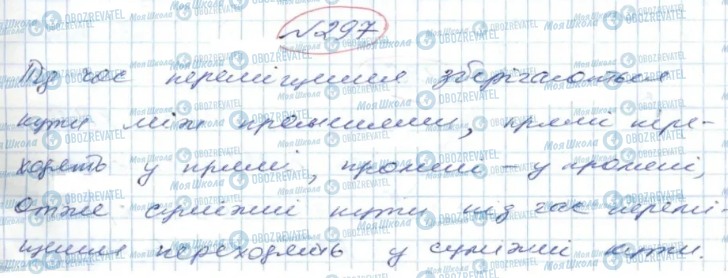 №297
Під час переміщення зберігаються
кути між променями, прямі пере-
ходять у прямі, промені - у промені,
отже суміжні кути під час перемі
щення переходять у суміжні кути.